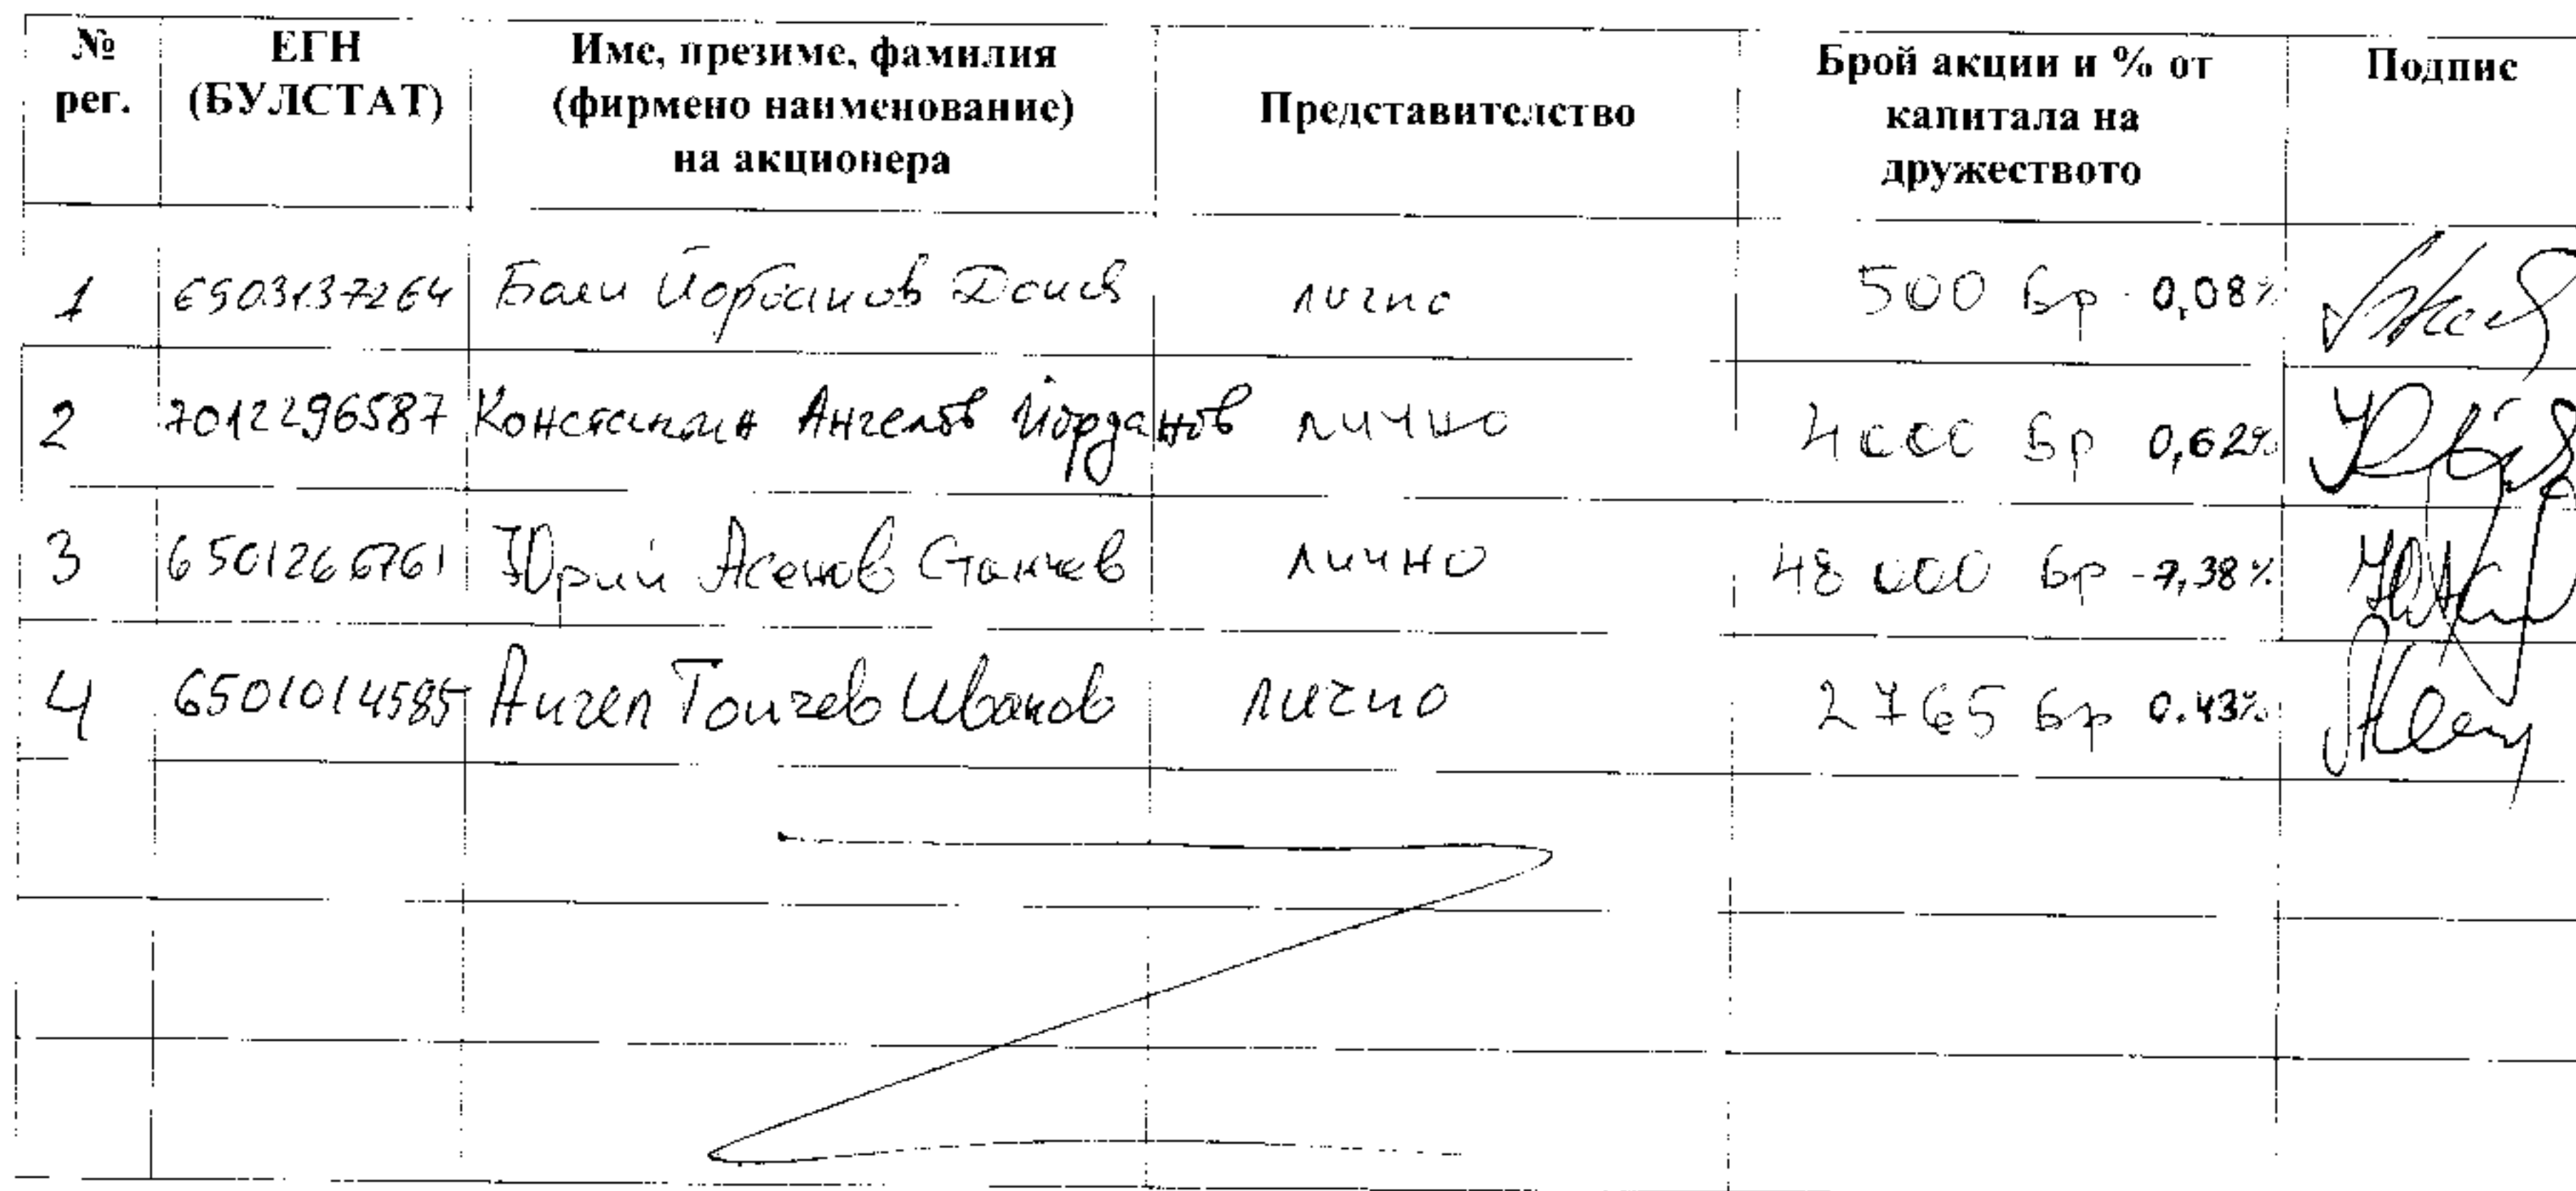 № рег. ЕГН (БУЛСТАТ) Име, презиме, фамилия (фирмено наименование) на акционера Представителство Брой акции и % от капитала на дружеството Подпис
1 6503137264 лично 500 бр - 0,08%
2 7012296587 Константин Ангелов Йорданов лично 4000 бр 0,62%
3 6501266761 Юрий Асенов Станчев лично 48 000 бр - 7,38%
4 6501014585 Ангел Тончев Иванов лично 2765 бр 0.43%